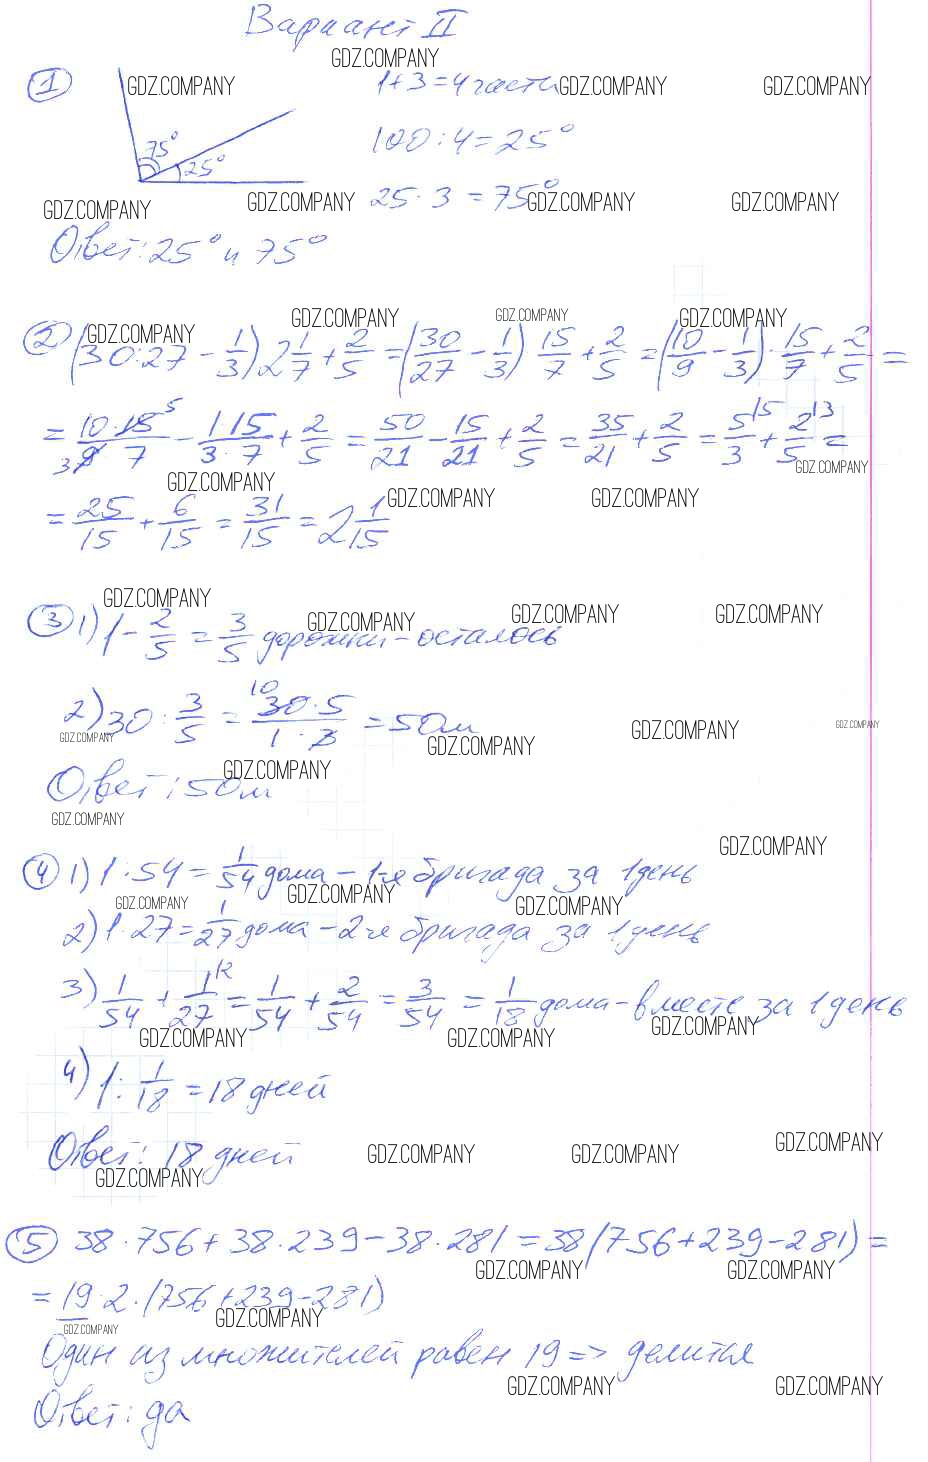 Вариант II
GDZ.COMPANY
① GDZ.COMPANY 1+3=4 части GDZ.COMPANY GDZ.COMPANY
75° 25° 100:4=25°
GDZ.COMPANY GDZ.COMPANY 25·3=75° GDZ.COMPANY GDZ.COMPANY
Ответ: 25° и 75°
GDZ.COMPANY GDZ.COMPANY GDZ.COMPANY GDZ.COMPANY
② (30:27 - 1/3) 2 1/7 + 2/5 = (30/27 - 1/3) 15/7 + 2/5 = (10/9 - 1/3) · 15/7 + 2/5 =
= 10·15 5/3 9 7 - 1 15/3·7 + 2/5 = 50/21 - 15/21 + 2/5 = 35/21 + 2/5 = 5/3 |5 + 2/5 |3 =
GDZ.COMPANY GDZ.COMPANY GDZ.COMPANY GDZ.COMPANY
= 25/15 + 6/15 = 31/15 = 2 1/15
GDZ.COMPANY GDZ.COMPANY GDZ.COMPANY GDZ.COMPANY
③ 1) 1 - 2/5 = 3/5 дорожки - осталось
2) 30 : 3/5 = 10 30·5/1·3 = 50 м
GDZ.COMPANY GDZ.COMPANY GDZ.COMPANY GDZ.COMPANY
GDZ.COMPANY
Ответ: 50 м
GDZ.COMPANY GDZ.COMPANY
④ 1) 1:54 = 1/54 дома - 1-я бригада за 1 день
GDZ.COMPANY GDZ.COMPANY GDZ.COMPANY
2) 1:27 = 1/27 дома - 2-я бригада за 1 день
3) 1/54 + 1/27 |2 = 1/54 + 2/54 = 3/54 = 1/18 дома - вместе за 1 день
GDZ.COMPANY GDZ.COMPANY GDZ.COMPANY
4) 1 : 1/18 = 18 дней
Ответ: 18 дней GDZ.COMPANY GDZ.COMPANY GDZ.COMPANY
GDZ.COMPANY
⑤ 38·756+38·239-38·281=38(756+239-281)=
GDZ.COMPANY GDZ.COMPANY
=19·2·(756+239-281)
GDZ.COMPANY GDZ.COMPANY
Один из множителей равен 19 => делится
GDZ.COMPANY GDZ.COMPANY
Ответ: да